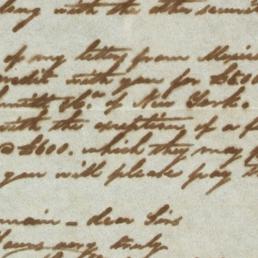 long with the other
of my letter from
credit with you for £500
Smith & Co. of New York.
with the exception of a
@ £600. which they may
you will please pay
main – dear Sirs
Yours very truly